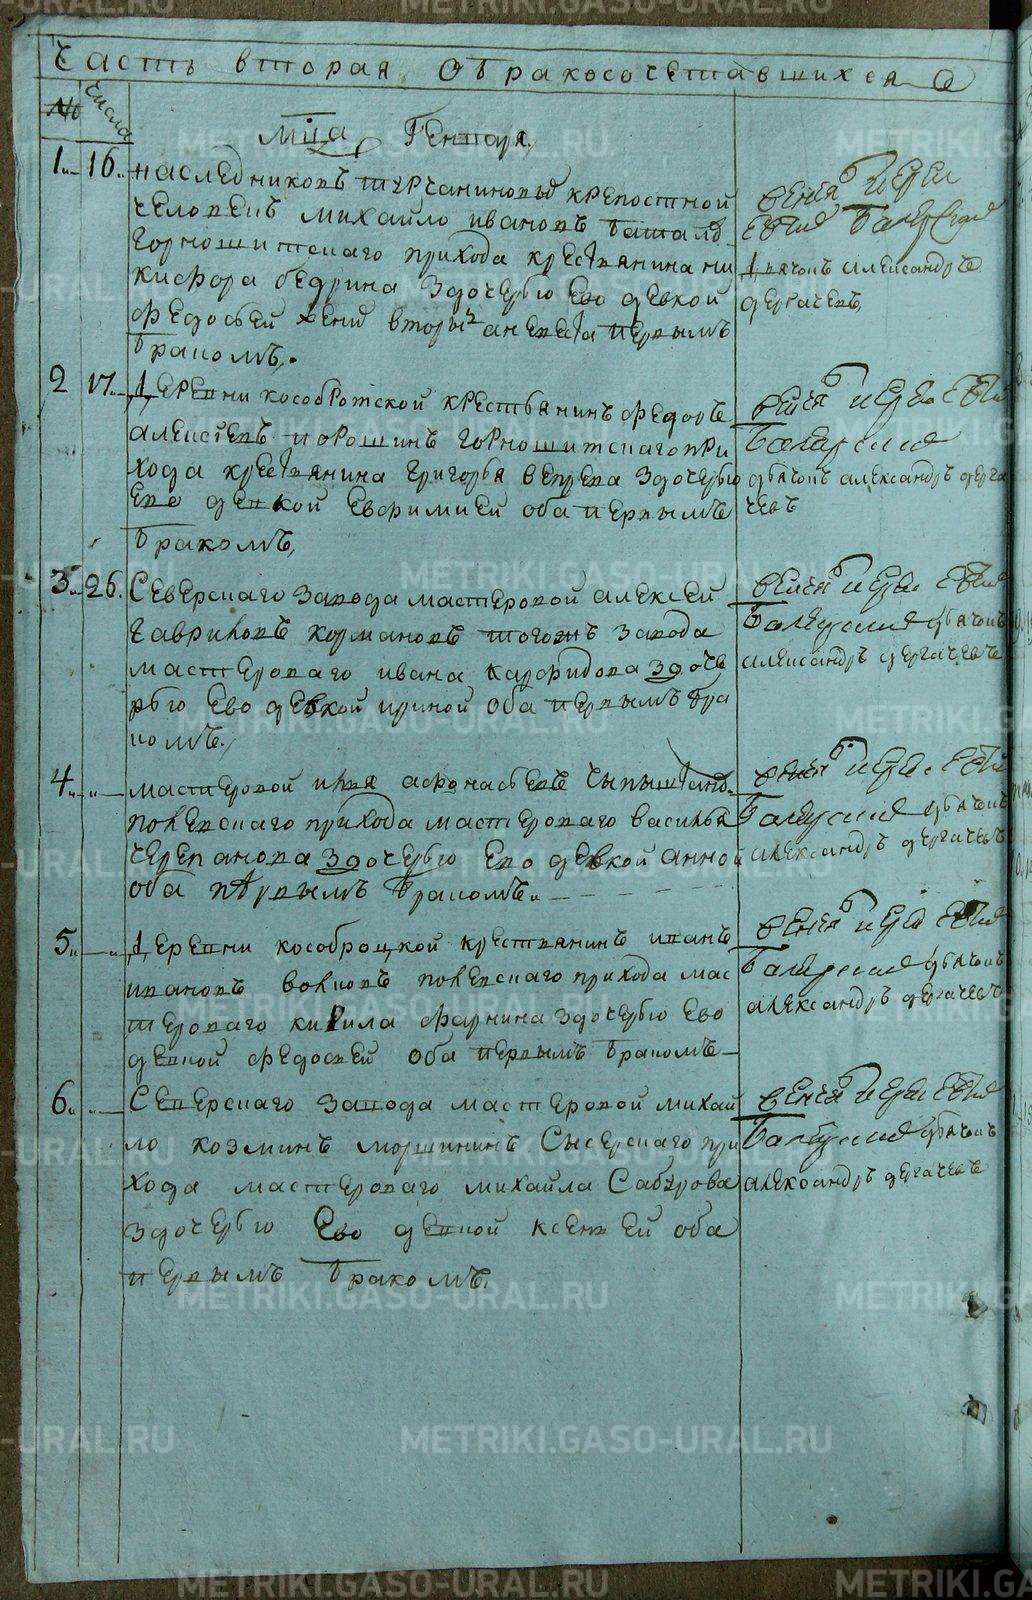 Часть вторая Обракосочетавшихся
№ Числа
Мца Генваря,
1 16 наследниковъ турчаниновы крепостной
человекъ михайло ивановъ
горношитскаго прихода крестьянина ни
кифора бедрина здочерью Ево девкой
Федосьей женъ вторы а невеста первымъ
бракомъ,
венчалъ Иерей
дьячокъ александръ
дергачевъ,
2 17 деревни кособротской крестьянинъ федоръ
алексеевъ порошинъ горношитскаго при
хода крестьянина григорья вепрева здочерью
Ево девкой Евфимией оба первымъ
бракомъ,
венчалъ иерей
дьячокъ александръ дерга
чевъ
3 26 Северскаго завода мастеровой алексей
гавриловъ кормановъ тогожъ завода
мастероваго ивана карфидова здоче
рью Ево девкой ириной оба первымъ бра
комъ,
венчалъ иерей
дьячокъ
александръ дергачевъ
4 мастеровой илья афонасьевъ
полевскаго прихода мастероваго василья
черепанова здочерью Ево девкой анной
оба первымъ бракомъ
венчалъ иерей
дьячокъ
александръ дергачевъ
5 деревни кособроцкой крестьянинъ иванъ
ивановъ волковъ полевскаго прихода мас
тероваго кирила фарнина здочерью Ево
девкой федосьей оба первымъ бракомъ
венчалъ иерей
дьячокъ
александръ дергачевъ
6 Северскаго завода мастеровой михай
ло козминъ моршининъ Сысерскаго при
хода мастероваго михайла Сабурова
здочерью Ево девкой ксеньей оба
первымъ бракомъ.
венчалъ иерей
дьячокъ
александръ дергачевъ
METRIKI.GASO-URAL.RU